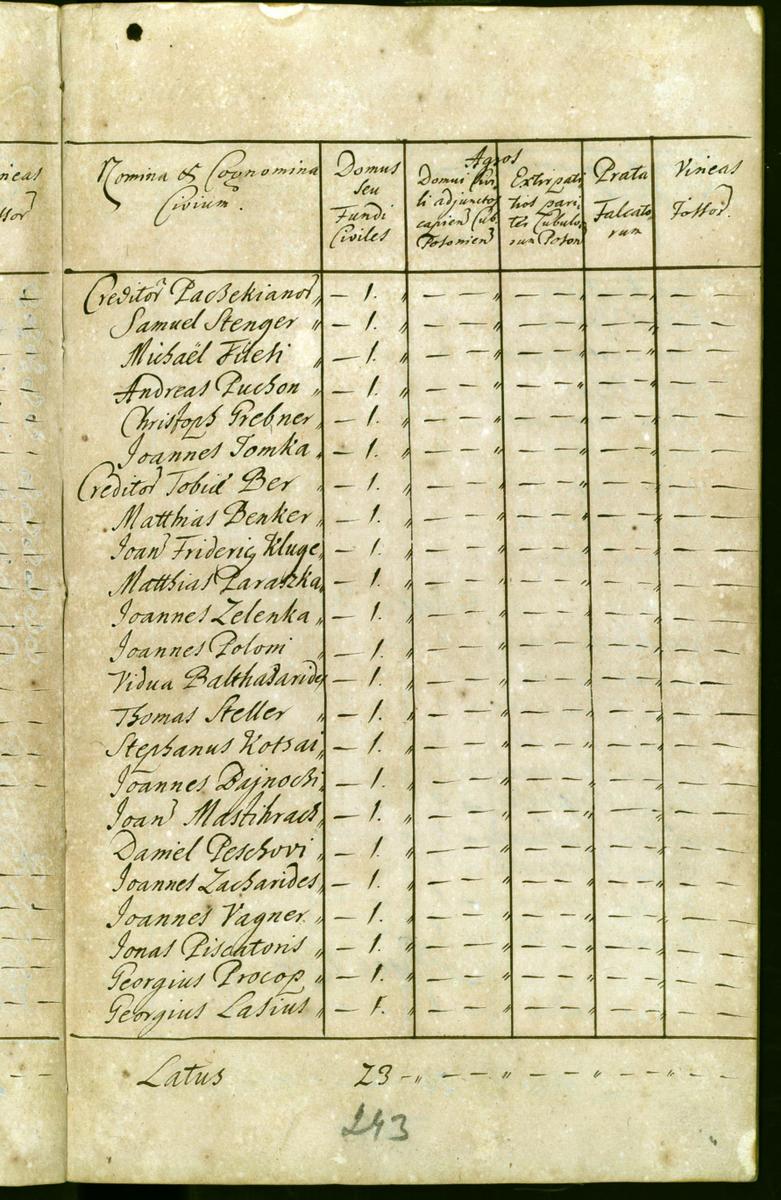 neas
ssor
Nomina & Cognomina
Civium.
Domus
seu
Fundi
Civiles
Agros
Domui Civi
li adjunctos
capien Cub.
Posonien
Extirpati
tios pari
ter Cubulo
rum Poson
Prata
Falcato
rum
Vineas
Fossor.
Creditor Pachekianor „ — 1. „ — — — „ — — — „ — — „ — — —
Samuel Stenger „ — 1. „ — — — „ — — — „ — — „ — — —
Michaël Fileti „ — 1. „ — — — „ — — — „ — — „ — — —
Andreas Puchon „ — 1. „ — — — „ — — — „ — — „ — — —
Christoph Grebner „ — 1. „ — — — „ — — — „ — — „ — — —
Joannes Tomka „ — 1. „ — — — „ — — — „ — — „ — — —
Creditor Tobiæ Ber „ — 1. „ — — — „ — — — „ — — „ — — —
Matthias Benker „ — 1. „ — — — „ — — — „ — — „ — — —
Joan Frideric Kluge „ — 1. „ — — — „ — — — „ — — „ — — —
Matthias Paraszka „ — 1. „ — — — „ — — — „ — — „ — — —
Joannes Zelenka „ — 1. „ — — — „ — — — „ — — „ — — —
Joannes Poloni „ — 1. „ — — — „ — — — „ — — „ — — —
Vidua Balthasarides „ — 1. „ — — — „ — — — „ — — „ — — —
Thomas Steller „ — 1. „ — — — „ — — — „ — — „ — — —
Stephanus Kotsai „ — 1. „ — — — „ — — — „ — — „ — — —
Joannes Dajnochi „ — 1. „ — — — „ — — — „ — — „ — — —
Joan Mastihrach „ — 1. „ — — — „ — — — „ — — „ — — —
Daniel Peschovi „ — 1. „ — — — „ — — — „ — — „ — — —
Joannes Zacharides „ — 1. „ — — — „ — — — „ — — „ — — —
Joannes Vagner „ — 1. „ — — — „ — — — „ — — „ — — —
Jonas Piscatoris „ — 1. „ — — — „ — — — „ — — „ — — —
Georgius Procop „ — 1. „ — — — „ — — — „ — — „ — — —
Georgius Lasius „ — 1. „ — — — „ — — — „ — — „ — — —
Latus 23 — „ — — — „ — — — „ — — „ — — —
243